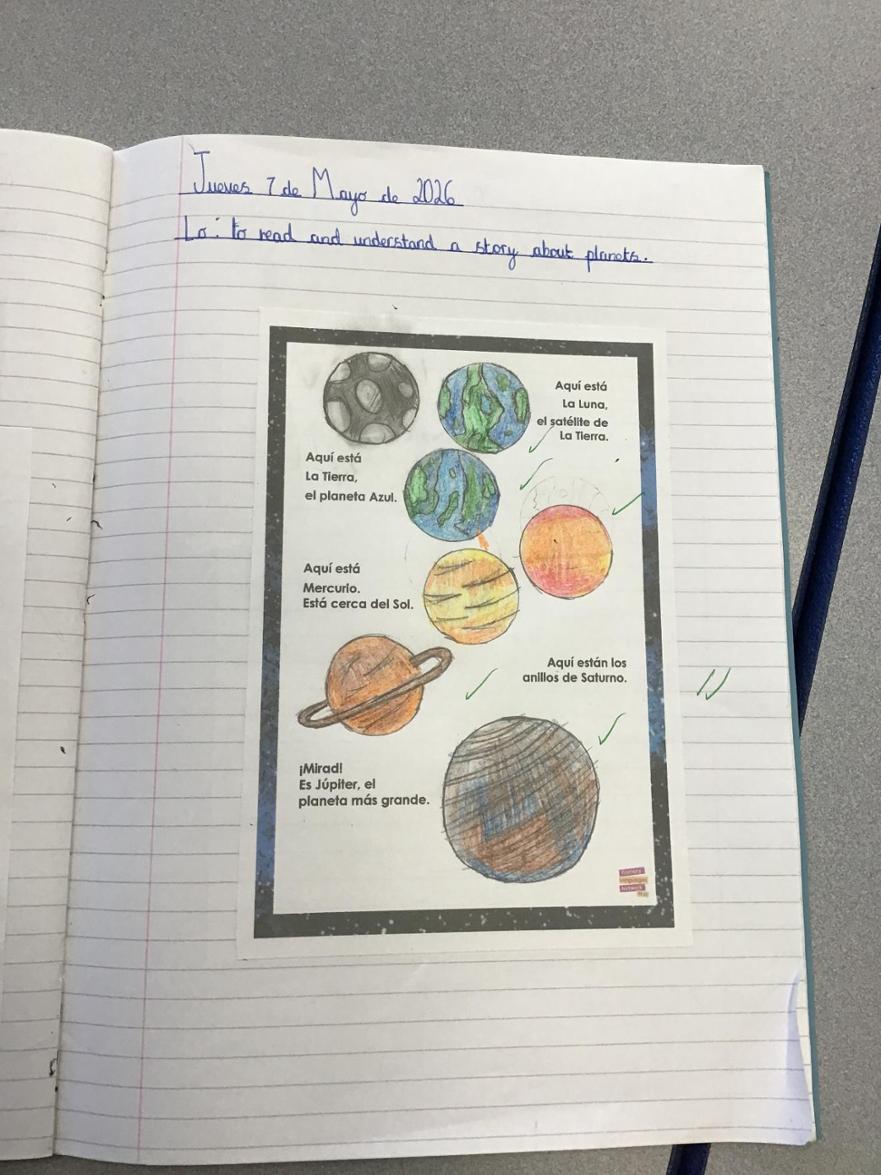 Jueves 7 de Mayo de 2026
Lo: to read and understand a story about planets.
Aquí está
La Luna,
el satélite de
La Tierra.
Aquí está
La Tierra,
el planeta Azul.
Aquí está
Mercurio.
Está cerca del Sol.
Aquí están los
anillos de Saturno.
¡Mirad!
Es Júpiter, el
planeta más grande.